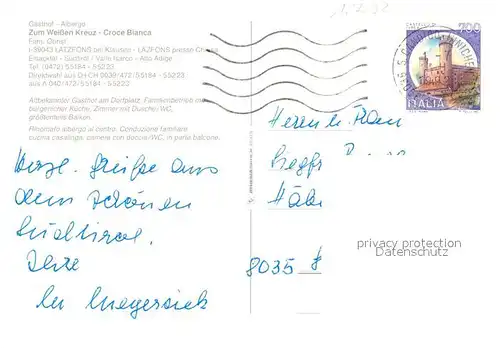 1.2.92
Gasthof - Albergo
Zum Weißen Kreuz - Croce Bianca
I-39043 LATZFONS bei Klausen - LAZFONS presso Chiusa
Eisacktal - Südtirol / Valle Isarco - Alto Adige
Tel (0472) 55184 - 55223
Direktwahl aus D+CH 0039/472/55184 - 55223
aus A 040/472/55184 - 55223
Altbekannter Gasthof am Dorfplatz. Familienbetrieb mit
bürgerlicher Küche, Zimmer mit Dusche/WC,
größtenteils Balkon.
Rinomato albergo al centro. Conduzione familiare
cucina casalinga, camere con doccia/WC, in parte balcone.
700
ITALIA
Herrn u. Frau
Herzl. Grüße aus
dem schönen
Südtirol.
Ihre
8035
privacy protection
Datenschutz